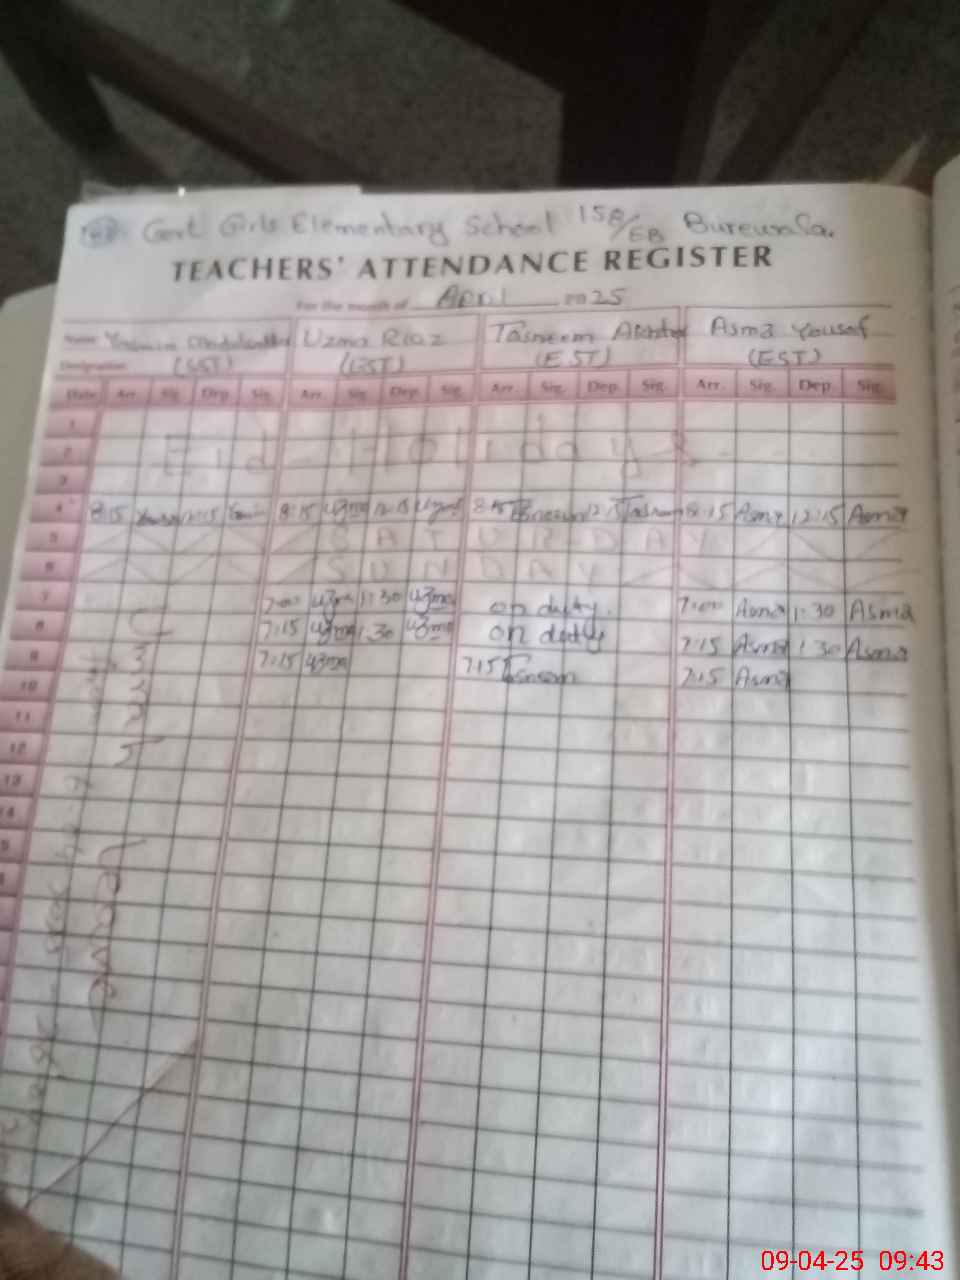 Govt Girls Elementary School 158/EB Burewala.
TEACHERS' ATTENDANCE REGISTER
For the month of April 2025
Name Uzma Riaz Tasneem Akhtar Asma Yousaf
Designation (SST) (EST) (EST) (EST)
Date Arr. Sig. Dep. Sig. Arr. Sig. Dep. Sig. Arr. Sig. Dep. Sig. Arr. Sig. Dep. Sig.
1
2 Eid Holidays
3
4 8:15 12:15 8:15 Uzma 12:15 Uzma 8:15 Tasneem 12:15 Tasneem 8:15 Asma 12:15 Asma
5 SATURDAY
6 SUNDAY
7 7:00 Uzma 1:30 Uzma on duty. 7:00 Asma 1:30 Asma
8 7:15 Uzma 1:30 Uzma on duty 7:15 Asma 1:30 Asma
9 7:15 Uzma 7:15 Tasneem 7:15 Asma
10
11
12
13
14
Leave
09-04-25 09:43